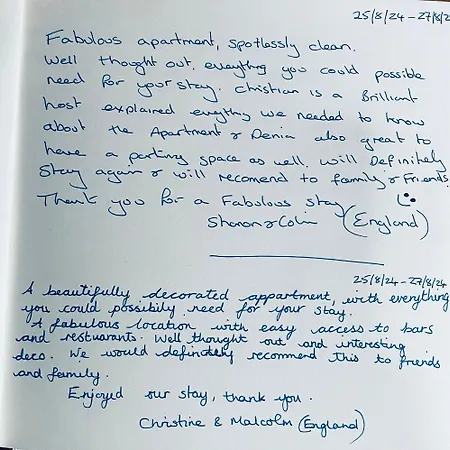 25/8/24 - 27/8/2
Fabulous apartment, spotlessly clean.
Well thought out, everything you could possible
need for your stay. Christian is a Brilliant
host explained everything we needed to know
about the Apartment & Denia also great to
have a parking space as well. Will Definitely
Stay again & will recomend to family & Friends.
Thank you for a Fabulous stay
Sharon & Colin (England)
25/8/24 - 27/8/24
A beautifully decorated appartment, with everything
you could possibily need for your stay.
A fabulous location with easy access to bars
and restuarants. Well thought out and interesting
deco. We would definately recommend this to friends
and family.
Enjoyed our stay, thank you.
Christine & Malcolm (England)